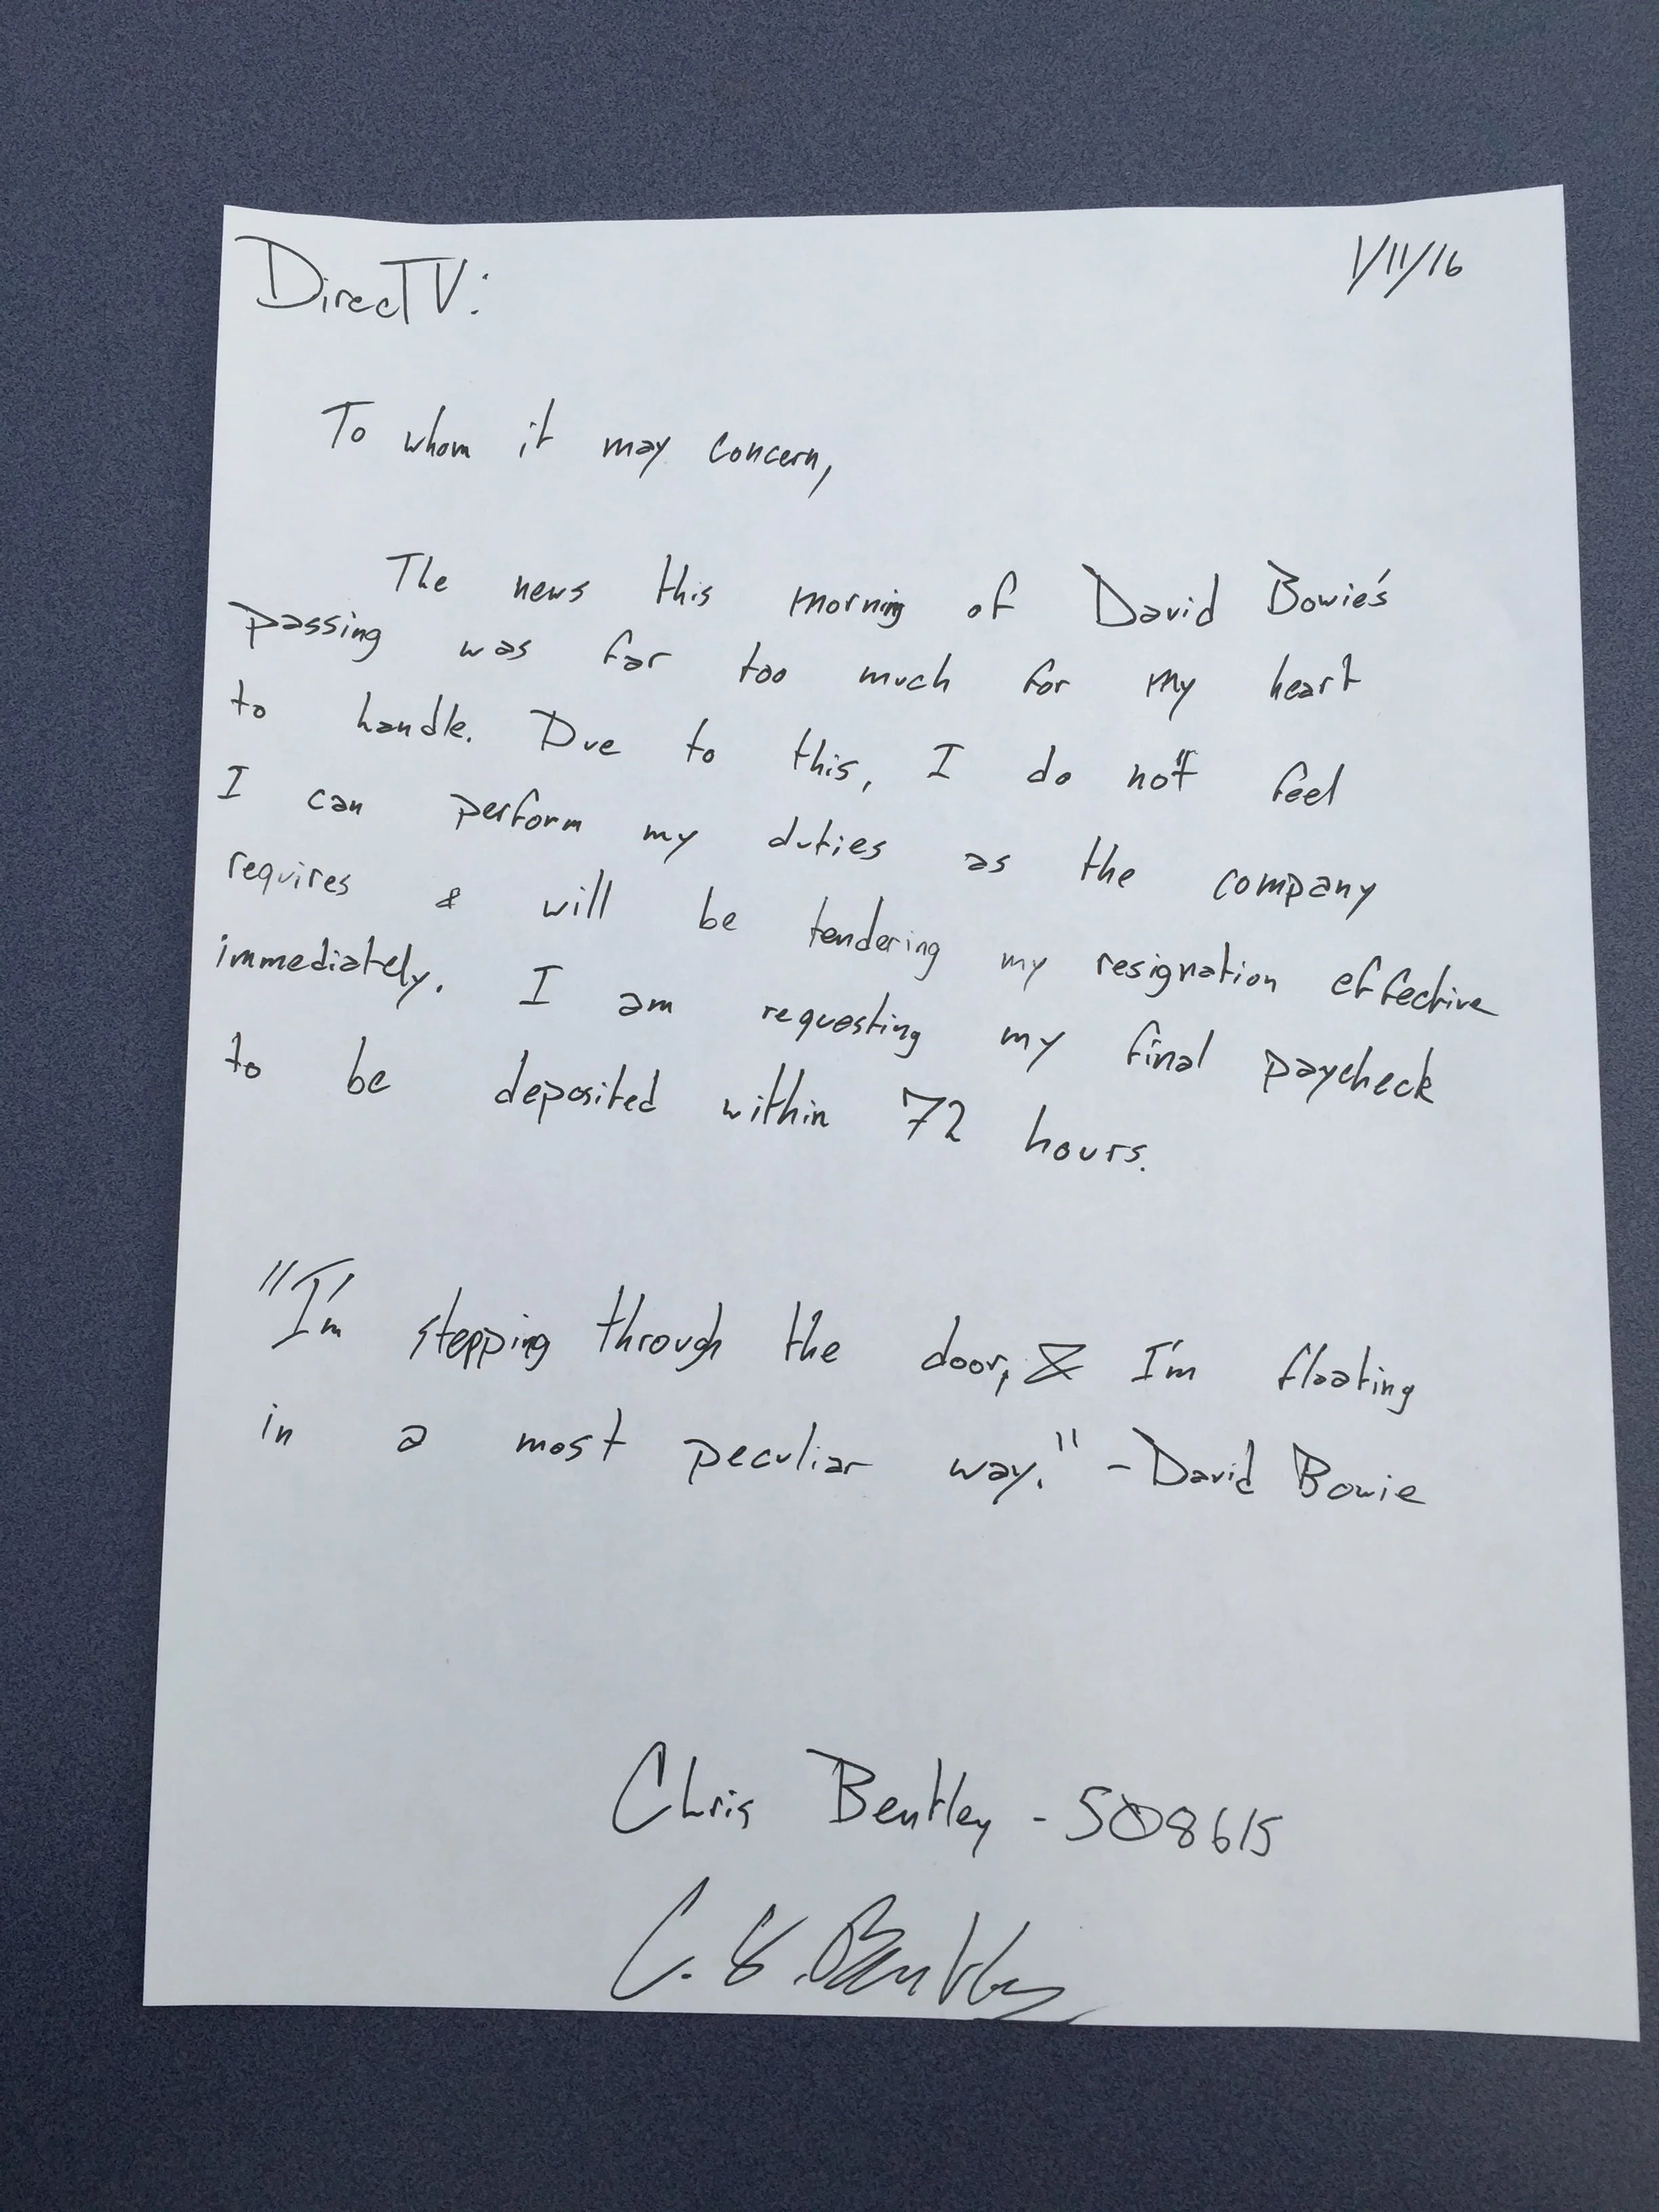 DirecTV:
1/11/16
To whom it may concern,
The news this morning of David Bowie's
passing was far too much for my heart
to handle. Due to this, I do not feel
I can perform my duties as the company
requires & will be tendering my resignation effective
immediately. I am requesting my final paycheck
to be deposited within 72 hours.
"I'm stepping through the door, & I'm floating
in a most peculiar way." - David Bowie
Chris Bentley - 508615
C. S. Bentley